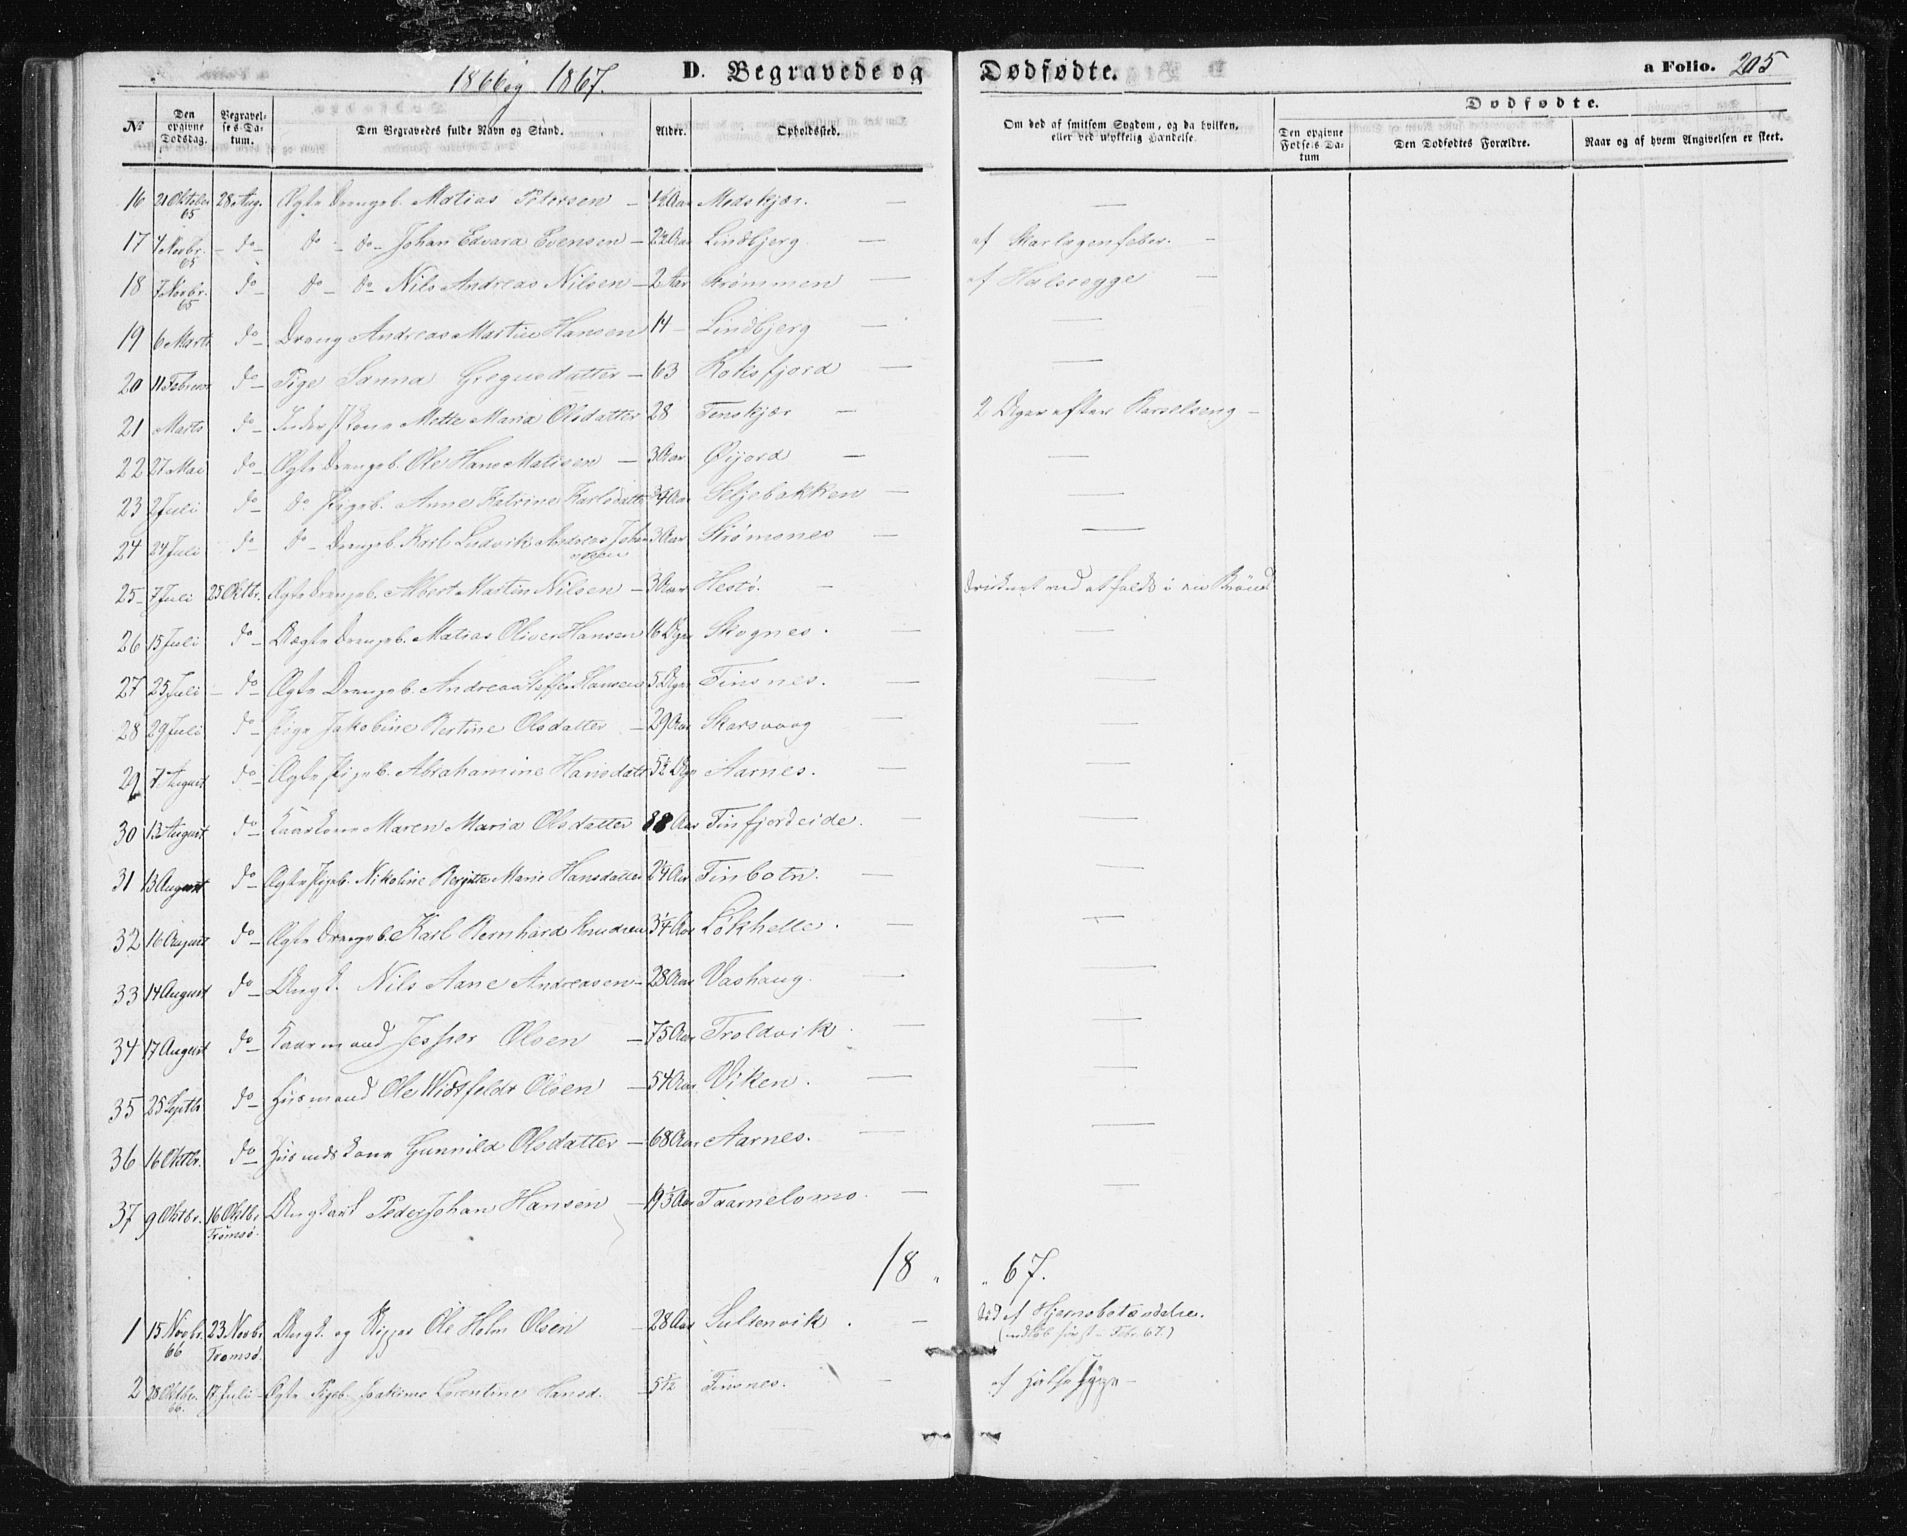 1866 og 1867. D. Begravede og Dødfødte. a Folio. 205
Dødfødte.
№ Den opgivne Dødsdag. Begravelses Datum. Den Begravedes fulde Navn og Stand. Alder. Opholdssted. Om død af smitsom Sygdom, og da hvilken, eller ved ulykkelig Hændelse. Den opgivne Fødsels Datum Den Dødfødtes Forældre. Naar og af hvem Angivelsen er skeet.
16 21 Oktober 65 28 Aug. Ægte Drengeb. Matias Petersen — 1½ Aar Medskjær. —
17 4 Novbr. 65 – do – do – do – Johan Edvard Evensen — 2½ Aar Lindbjerg — af Skarlagensfeber. –
18 7 Novbr. 65 do – do – do – Nils Andreas Nilsen — 2 Aar Strømmen — af Halssyge –
19 6 Marts do – Dreng Andreas Martin Hansen 14 – Lindbjerg — —
20 11 Februar do – Pige Sanna Gregusdatter — 63 Roksfjord — —
21 Marts do – Inderst Kone Mette Maria Olsdatter 28 Finskjær — 2 Uger efter Barselseng –
22 27 Mai do – Ægte Drengeb. Ole Hans Matisen — 3 Aar Øijord — —
23 2 Juli do – do Pigeb. Anne Katrine Karlsdatter ¾ Aar Seljebakken — —
24 24 Juli do – do – Drengeb. Karl Ludvik Andreas Johan 3 Aar Strømsnes — —
25 – 7 Juli 25 Oktbr. Ægte Drengeb. Albert Martin Nilsen — 3 Aar Hestø. — Druknet ved at falde i en Brønd
26 15 Juli do – Uægte Drengeb. Matias Oliver Hansen 16 Uger Skognes. — —
27 25 Juli – do – Ægte Drengeb. Andreas Steffen Hansen 5 Uger Finsnes. — —
28 29 Juli do – Pige Jakobine Bertine Olsdatter — 29 Aar Skarsvaag — —
29 7 August do – Ægte Pigeb. Abrahamine Hansdatt 5½ Uge Aarnes. — —
30 12 August do – Kaarkone Maren Maria Olsdatter 88 Aar Finfjordeide. — —
31 13 August do – Ægte Pigeb. Nikoline Bergitte Marie Hansdatter 2¼ Aar Finbotn. — —
32 16 August do – Ægte Drengeb. Karl Bernhard Knudsen 3¼ Aar Løkhelle. — —
33 14 August do – Ungk. Nils Aane Andreasen — 28 Aar Vashaug. — —
34 17 August do – Kaarmand Jesper Olsen — 75 Aar Troldvik — —
35 25 Septbr do – Husmand Ole Widsfeldt Olsen — 54 Aar Viken. — —
36 16 Oktbr. do – Husmds Kone Gunnild Olsdatter — 68 Aar Aarnes. — —
37 9 Oktbr. 16 Oktbr. Tromsø. Ungkarl Peder Johan Hansen — 19 Aar Taarnelomo. — —
18 „ „ 67.
1 15 Novbr. 66 23 Novbr Tromsø. Ungk. og Skipper Ole Holm Olsen — 28 Aar Sultenvik. — død af Hjernebetændelse.
(indløb først – Febr. 67.)
2 28 Oktbr. 66 17 Juli – Ægte Pigeb. Joakime Lorentine Hansd. — 5½ Finsnes. — af Halssyge –